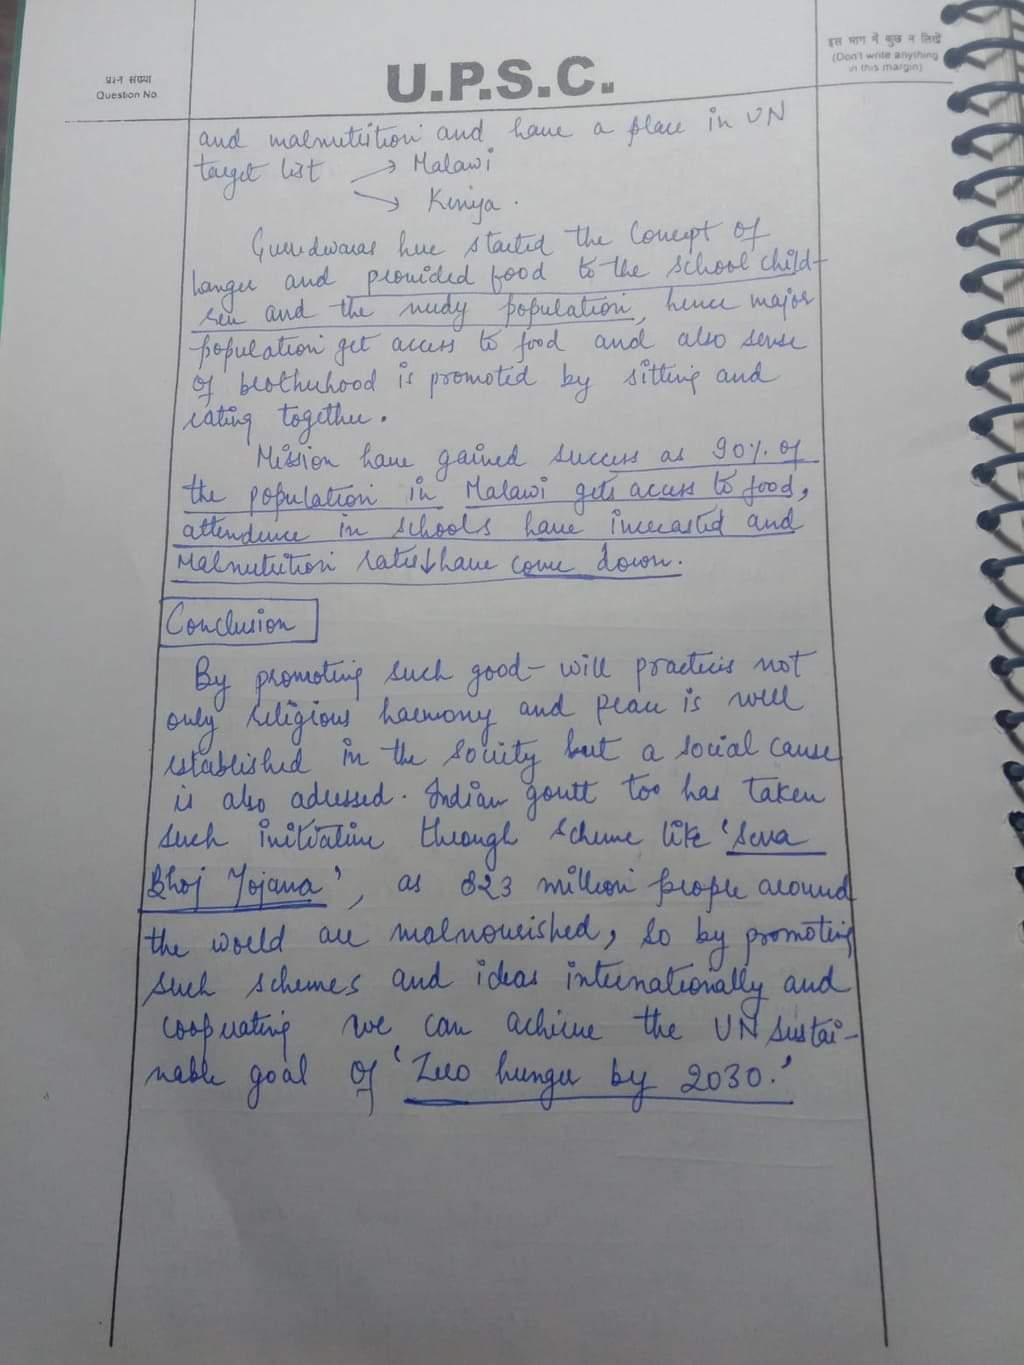 प्रश्न संख्या
Question No.
U.P.S.C.
इस भाग में कुछ न लिखें
(Don't write anything
in this margin)
and malnutrition and have a place in UN
target list → Malawi
→ Keniya.
Gurudwaras here started the Concept of
langer and provided food to the school child-
ren and the needy population, hence major
population get access to food and also sense
of brotherhood is promoted by sitting and
eating together.
Mission have gained success as 90% of
the population in Malawi gets access to food,
attendence in schools have increased and
Malnutrition rates↓have come down.
Conclusion
By promoting such good-will practices not
only religious harmony and peace is well
established in the society but a social cause
is also adressed. Indian govtt too has taken
such initiative through scheme like 'Seva
Bhoj Yojana', as 823 million people around
the world are malnourished, so by promoting
such schemes and ideas internationally and
cooperating we can achieve the UN sustai-
nable goal of 'Zero hunger by 2030.'